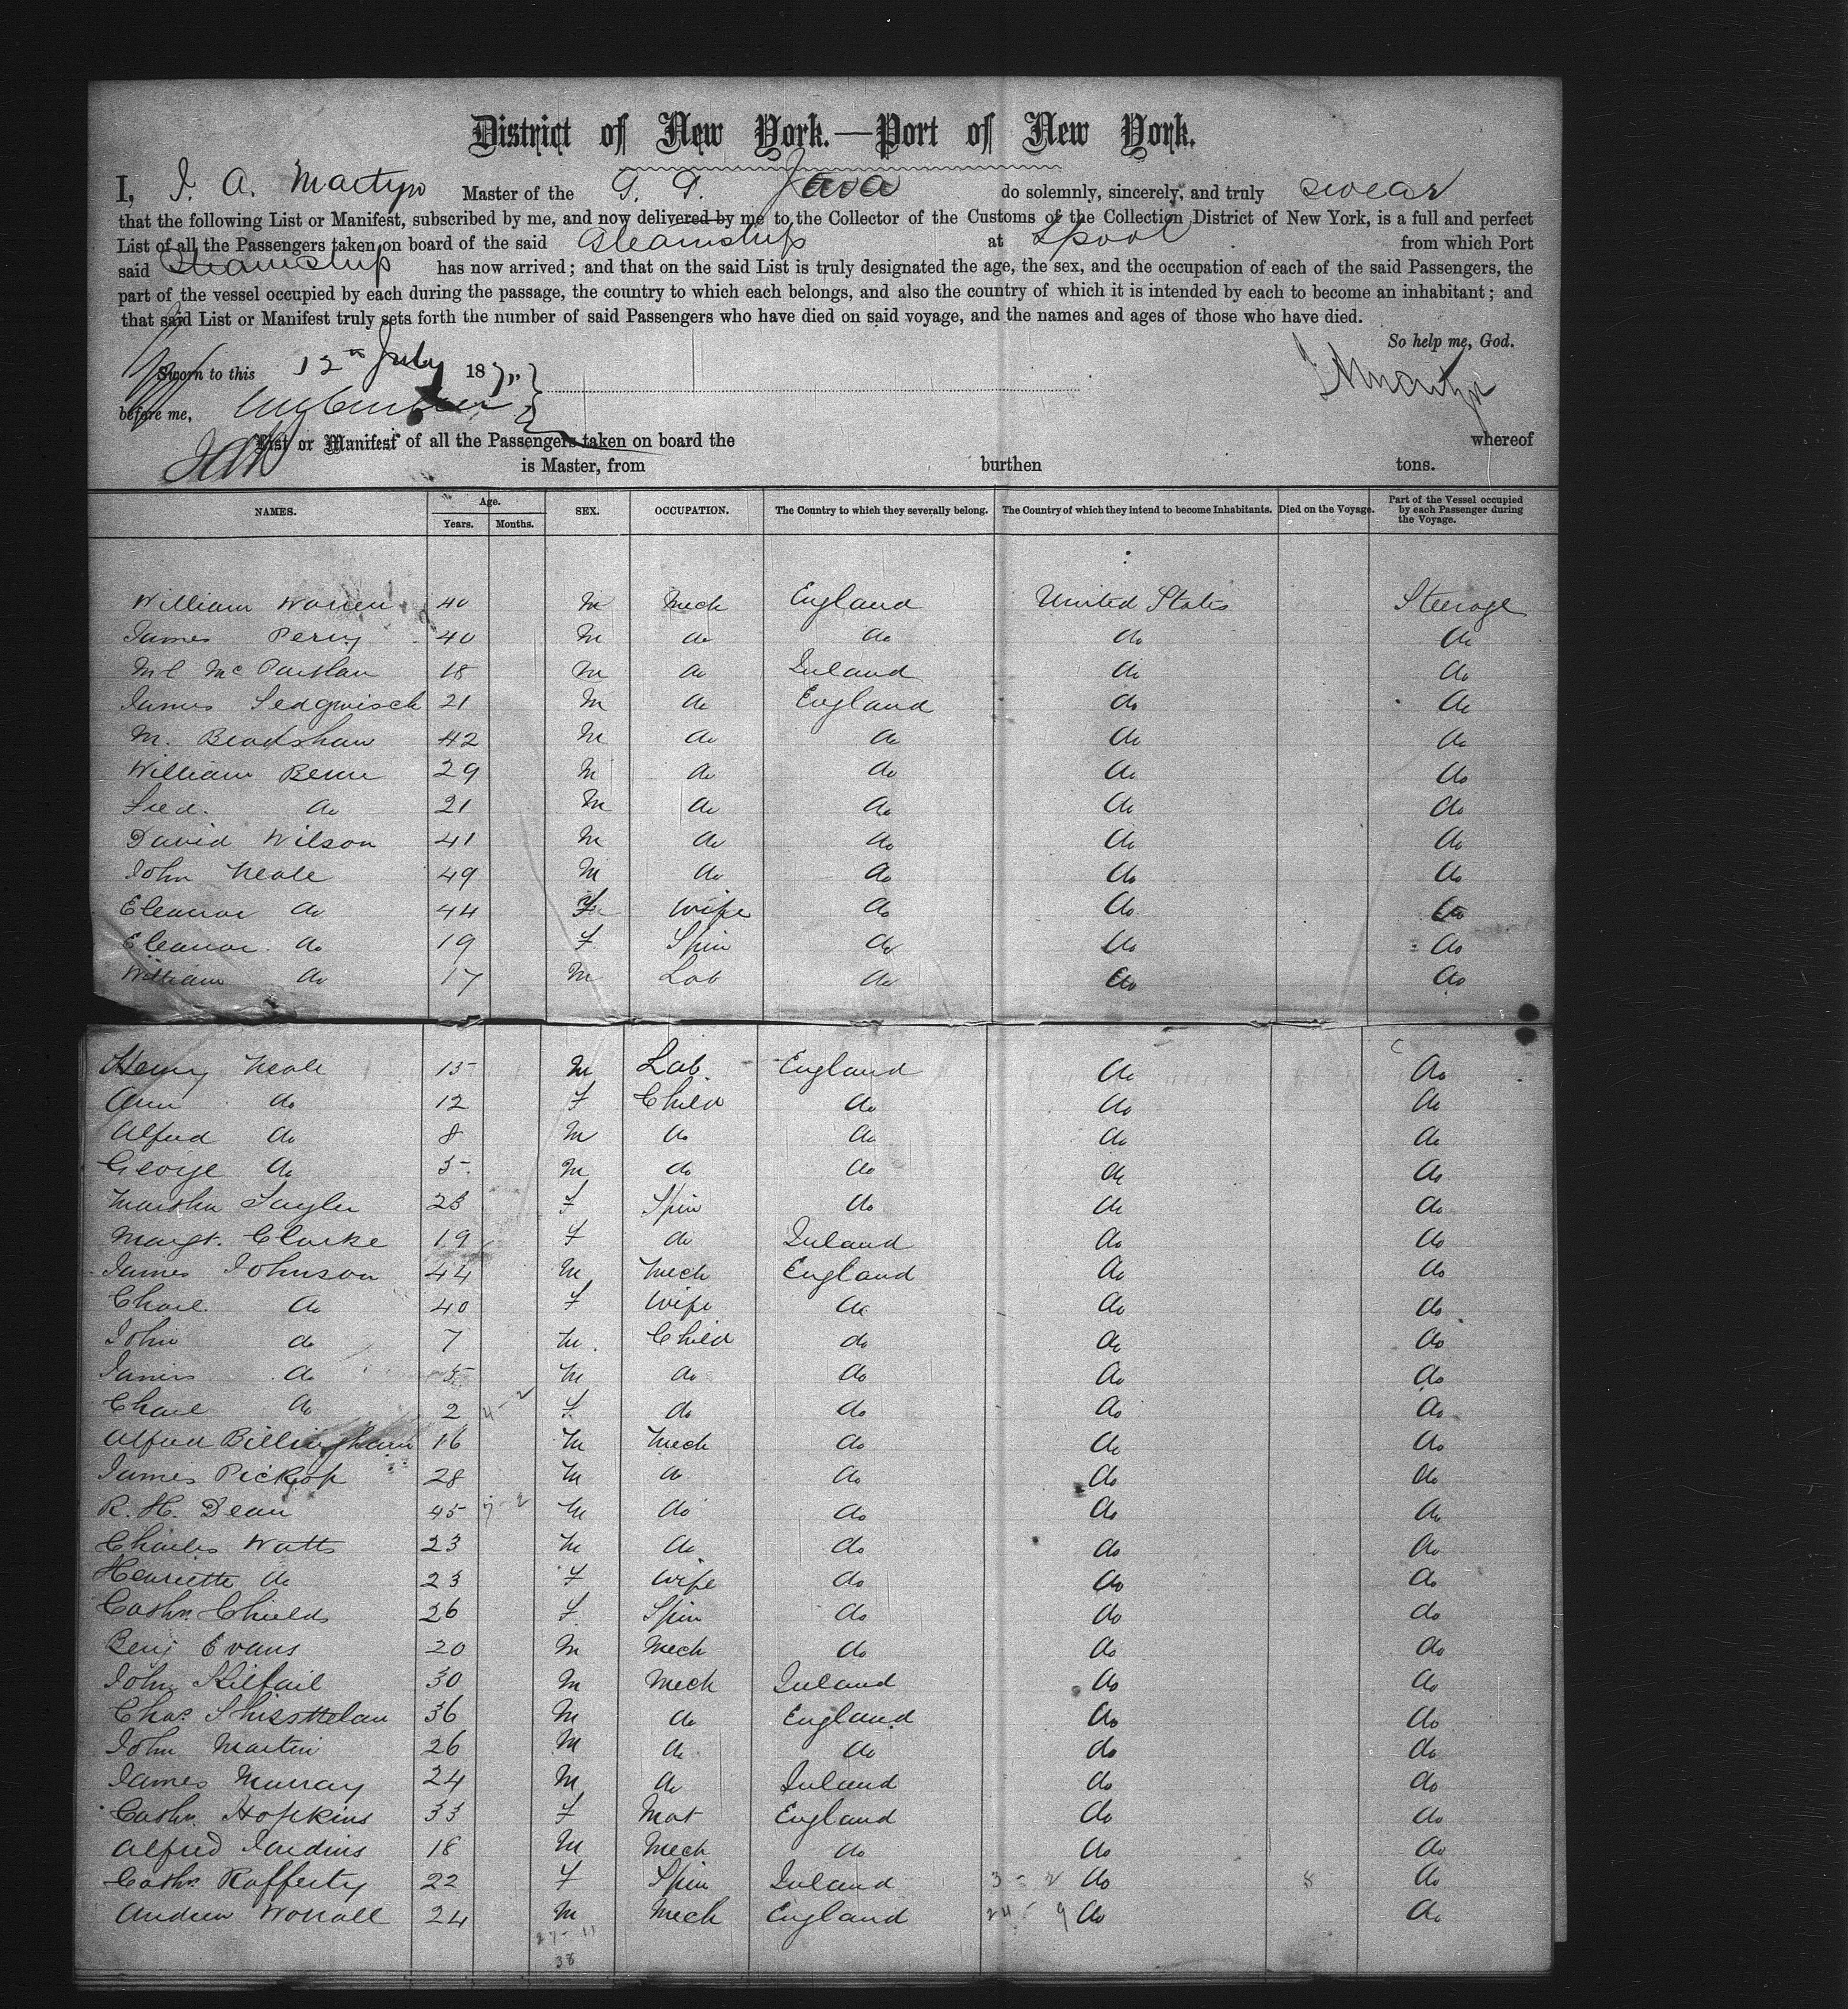 District of New York.—Port of New York.
I, J. A. Martyn Master of the S. S. Java do solemnly, sincerely, and truly swear
that the following List or Manifest, subscribed by me, and now delivered by me to the Collector of the Customs of the Collection District of New York, is a full and perfect
List of all the Passengers taken on board of the said Steamship at Lpool from which Port
said Steamship has now arrived; and that on the said List is truly designated the age, the sex, and the occupation of each of the said Passengers, the
part of the vessel occupied by each during the passage, the country to which each belongs, and also the country of which it is intended by each to become an inhabitant; and
that said List or Manifest truly sets forth the number of said Passengers who have died on said voyage, and the names and ages of those who have died.
So help me, God.
Sworn to this 12th July 187
before me,
List or Manifest of all the Passengers taken on board the whereof
is Master, from burthen tons.
NAMES. Age. Years. Months. SEX. OCCUPATION. The Country to which they severally belong. The Country of which they intend to become Inhabitants. Died on the Voyage. Part of the Vessel occupied by each Passenger during the Voyage.
William Warren 40 M Mech England United States Steerage
James Percy 40 M do do do do
Ml McPartlan 18 M do Ireland do do
James Sedgwisck 21 M do England do do
M. Bradshaw 42 M do do do do
William Benn 29 M do do do do
Fred. do 21 M do do do do
David Wilson 41 M do do do do
John Neale 49 M do do do do
Eleanor do 44 F Wife do do do
Eleanor do 19 F Spin do do do
William do 17 M Lab do do do
Henry Neale 15 M Lab. England do do
Ann do 12 F Child do do do
Alfred do 8 M do do do do
George do 5 M do do do do
Martha Tayler 23 F Spin do do do
Margt. Clarke 19 F do Ireland do do
James Johnson 44 M Mech England do do
Charl. do 40 F Wife do do do
John do 7 M Child do do do
James do 5 M do do do do
Charl do 2 F do do do do
Alfred Billingham 16 M Mech do do do
James Pickop 28 M do do do do
R. H. Dean 45 M do do do do
Charles Watts 23 M do do do do
Henriette do 23 F Wife do do do
Cathn. Chields 26 F Spin do do do
Benj Evans 20 M Mech do do do
John Kilfail 30 M Mech Ireland do do
Chas. 36 M do England do do
John Martin 26 M do do do do
James Murray 24 M do Ireland do do
Cathn. Hopkins 33 F Mat England do do
Alfred Jardins 18 M Mech do do do
Cathn. Rafferty 22 F Spin Ireland do do
Andrew Worrall 24 M Mech England do do
27 - 11
38